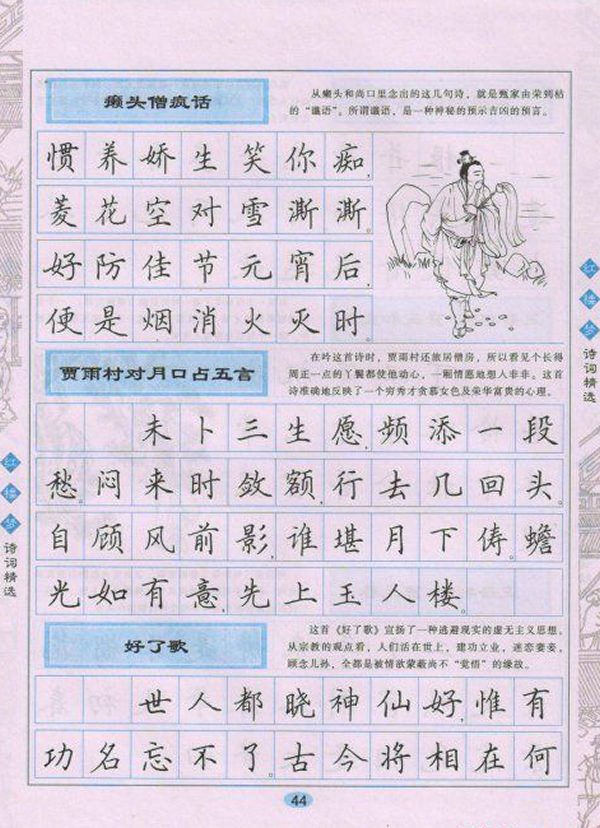 癞头僧疯话
从癞头和尚口里念出的这几句诗，就是甄家由荣到枯
的“谶语”。所谓谶语，是一种神秘的预示吉凶的预言。
惯养娇生笑你痴，
菱花空对雪澌澌。
好防佳节元宵后，
便是烟消火灭时。
贾雨村对月口占五言
在吟这首诗时，贾雨村还旅居僧房，所以看见个长得
周正一点的丫鬟都使他动心，一厢情愿地想人非非。这首
诗准确地反映了一个穷秀才贪慕女色及荣华富贵的心理。
未卜三生愿，频添一段
愁。闷来时敛额，行去几回头。
自顾风前影，谁堪月下俦。蟾
光如有意，先上玉人楼。
好了歌
这首《好了歌》宣扬了一种逃避现实的虚无主义思想。
从宗教的观点看，人们活在世上，建功立业，迷恋妻妾，
顾念儿孙，全都是被情欲蒙蔽尚不“觉悟”的缘故。
世人都晓神仙好，惟有
功名忘不了。古今将相在何
44
红楼梦
诗词精选
红楼梦
诗词精选